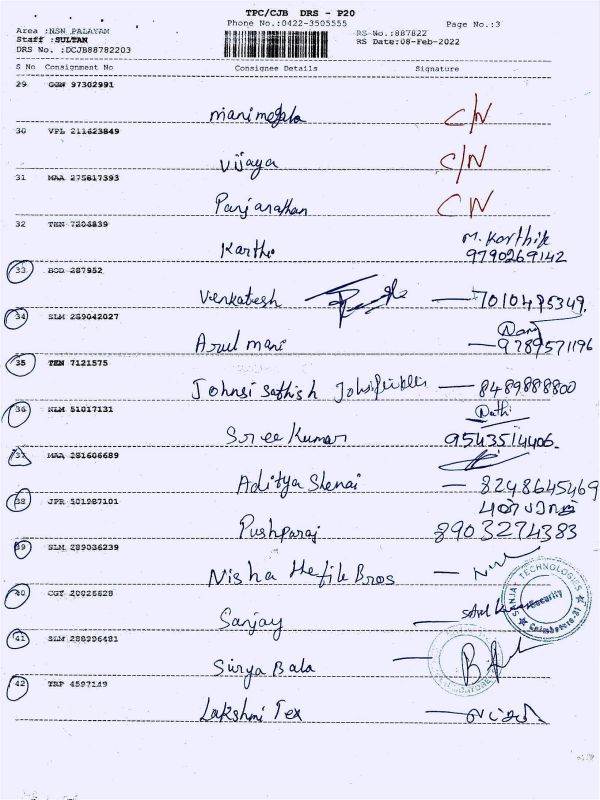 TPC/CJB DRS - P20
Phone No.:0422-3505555
Page No.:3
Area :NSN PALAYAM
Staff :SULTAN
DRS No. :DCJB88782203
RS No.:887822
RS Date:08-Feb-2022
S No Consignment No Consignee Details Signature
29 GGN 97302991
manimegala C/N
30 VPL 211623849
Vijaya C/N
31 MAA 275817393
Panjanathan CN
32 TEN 7206839
Karthi M. Karthik
9790269142
33 BOD 287952
Venkatesh
34 SLM 289042027
Arul mani 9789571196
35 TEN 7121575
Johnsi Sathish 8489888800
36 NLM 51017131
Sree Kumar 9543514406.
37 MAA 281606689
Aditya Shenai 8248645469
38 JPR 501987101
Pushparaj 8903274383
39 SLM 289036239
Nisha Bros
40 CGY 20026628
Sanjay
SANJAY TECHNOLOGIES
Security
Coimbatore-31
41 SLM 288296481
Surya Bala
42 TRP 4597149
Lakshmi Tex